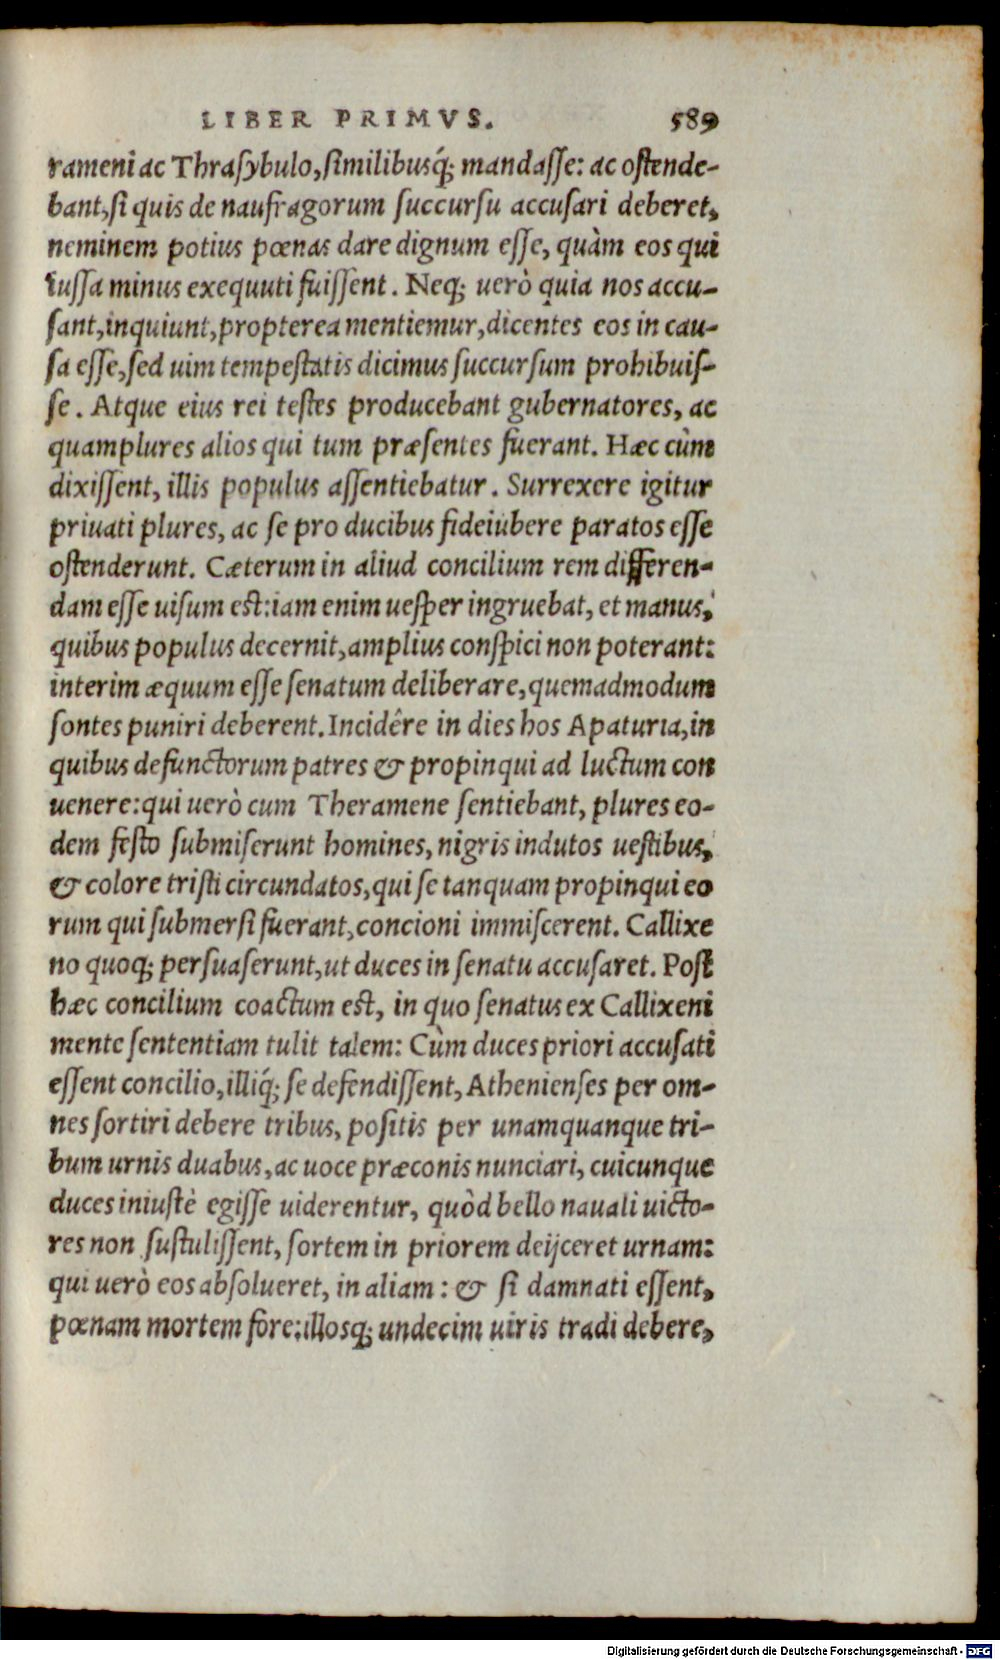 LIBER PRIMVS. 589
rameni ac Thrasybulo, similibusq́; mandasse: ac ostende-
bant, si quis de naufragorum succursu accusari deberet,
neminem potius pœnas dare dignum esse, quàm eos qui
iussa minus exequuti fuissent. Neq; uerò quia nos accu-
sant, inquiunt, propterea mentiemur, dicentes eos in cau-
sa esse, sed uim tempestatis dicimus succursum prohibuis-
se. Atque eius rei testes producebant gubernatores, ac
quamplures alios qui tum præsentes fuerant. Hæc cùm
dixissent, illis populus assentiebatur. Surrexere igitur
priuati plures, ac se pro ducibus fideiubere paratos esse
ostenderunt. Cæterum in aliud concilium rem differen-
dam esse uisum est: iam enim uesper ingruebat, et manus,
quibus populus decernit, amplius conspici non poterant:
interim æquum esse senatum deliberare, quemadmodum
sontes puniri deberent. Incidêre in dies hos Apaturia, in
quibus defunctorum patres & propinqui ad luctum con
uenere: qui uerò cum Theramene sentiebant, plures eo-
dem festo submiserunt homines, nigris indutos uestibus,
& colore tristi circundatos, qui se tanquam propinqui eo
rum qui submersi fuerant, concioni immiscerent. Callixe
no quoq; persuaserunt, ut duces in senatu accusaret. Post
hæc concilium coactum est, in quo senatus ex Callixeni
mente sententiam tulit talem: Cùm duces priori accusati
essent concilio, illiq́; se defendissent, Athenienses per om-
nes sortiri debere tribus, positis per unamquanque tri-
bum urnis duabus, ac uoce præconis nunciari, cuicunque
duces iniustè egisse uiderentur, quòd bello nauali uicto-
res non sustulissent, sortem in priorem deijceret urnam:
qui uerò eos absolueret, in aliam: & si damnati essent,
pœnam mortem fore: illosq; undecim uiris tradi debere,
Digitalisierung gefördert durch die Deutsche Forschungsgemeinschaft - DFG